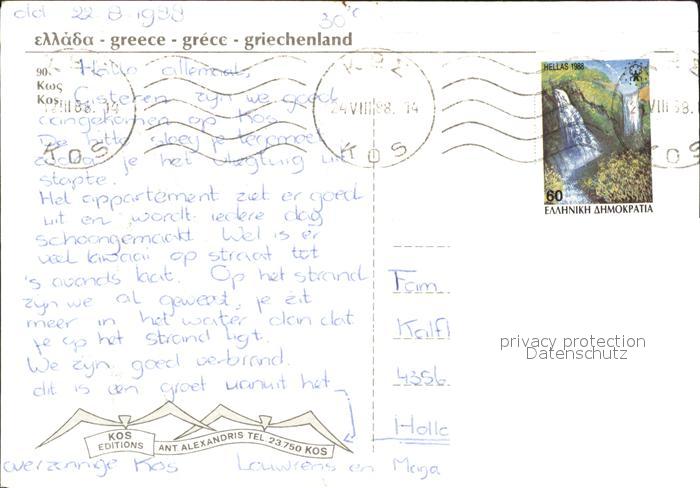 dld 22-8-1988 30°C
ελλάδα - greece - grèce - griechenland
Hallo allemaal,
90.
Κως
Kos
Gisteren zijn we goed
aangekomen op Kos.
De hitte sloeg je tegemoet
zodra je het vliegtuig uit
stapte.
Het appartement ziet er goed
uit en wordt iedere dag
schoongemaakt. Wel is er
veel lawaai op straat tot
's avonds laat. Op het strand
zijn we al geweest, je zit
meer in het water dan dat
je op het strand ligt.
We zijn goed verbrand.
dit is een groet vanuit het
overzonnige Kos Louwrens en
KOS
EDITIONS
ANT. ALEXANDRIS TEL. 23.750 KOS
24 VIII 88. 14
KOS
HELLAS 1988
60
ΕΛΛΗΝΙΚΗ ΔΗΜΟΚΡΑΤΙΑ
Fam
Kalf
4356
Holl
privacy protection
Datenschutz